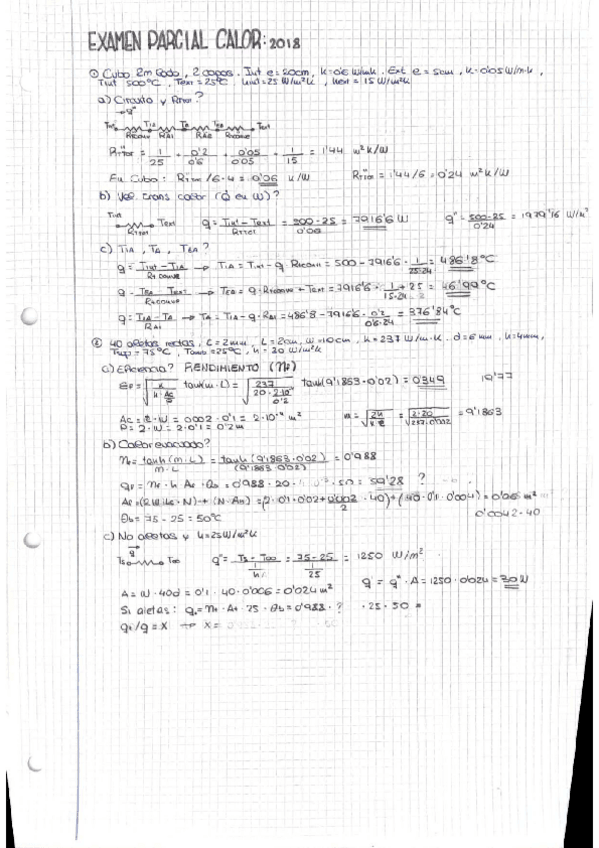 EXAMEN PARCIAL CALOR: 2018
① Cubo 2m lado, 2 capas. Int e = 20cm, k = 0'6 W/mk. Ext e = 5cm, k = 0'05 W/m·k,
Tint 500°C, Text = 25°C. hint = 25 W/m²k, hext = 15 W/m²k
a) Circuito y RTOT?
Tint TIA TA TEA Text
RTOT = 1/25 + 0'2/0'6 + 0'05/0'05 + 1/15 = 1'44 m²k/W
En Cubo: RTOT /6·4 = 0'06 k/W R"TOT = 1'44/6 = 0'24 m²k/W
b) Vel. trans calor (Q en W)?
Tint Text q = Tint - Text / RTOT = 500 - 25 / 0'06 = 7916'6 W q" = 500-25 / 0'24 = 1979'16 W/m²
c) TIA, TA, TEA?
q = Tint - TIA / → TIA = Tint - q · Rconv = 500 - 7916'6 · 1/25·24 = 486'8°C
q = TEA - Text / Rconve → TEA = q · Rconve + Text = 7916'6 · 1/15·24 + 25 = 46'99°C
q = TIA - TA / RAI → TA = TIA - q · RAI = 486'8 - 7916'6 · 0'2/0'6·24 = 376'84°C
② 40 aletas rectas, t = 2mm, L = 2cm, w = 10cm, k = 237 W/m·k. d = 6mm, = 4mm,
Tsup = 75°C, Tamb = 25°C, h = 20 W/m²k
a) Eficiencia? RENDIMIENTO
tanh(m·L) = 237 / 20 · 2·10 / 0'2 tanh(9'1863·0'02) = 0'349 19'77
Ac = t·W = 0'002·0'1 = 2·10⁻⁴ m² m = √2h / = √2·20 / 237·0'002 = 9'1863
P = 2·W = 2·0'1 = 0'2m
b) Calor evacuado?
= tanh(m·L) / m·L = tanh(9'1863·0'02) / (9'1863·0'02) = 0'988
= 0'988 · 20 · · 50 = 59'28 ?
= 0'06 m²
0'0042·40
θb = 75 - 25 = 50°C
c) No aletas y h = 25W/m²k
Ts T∞ q" = Ts - T∞ / 1/h = 75-25 / 1/25 = 1250 W/m²
A = W · 40d = 0'1 · 40 · 0'006 = 0'024 m² q = q" · A = 1250 · 0'024 = 30W
Si aletas: · 25 · θb = 0'988 · ? · 25 · 50 =
/q = X → X =